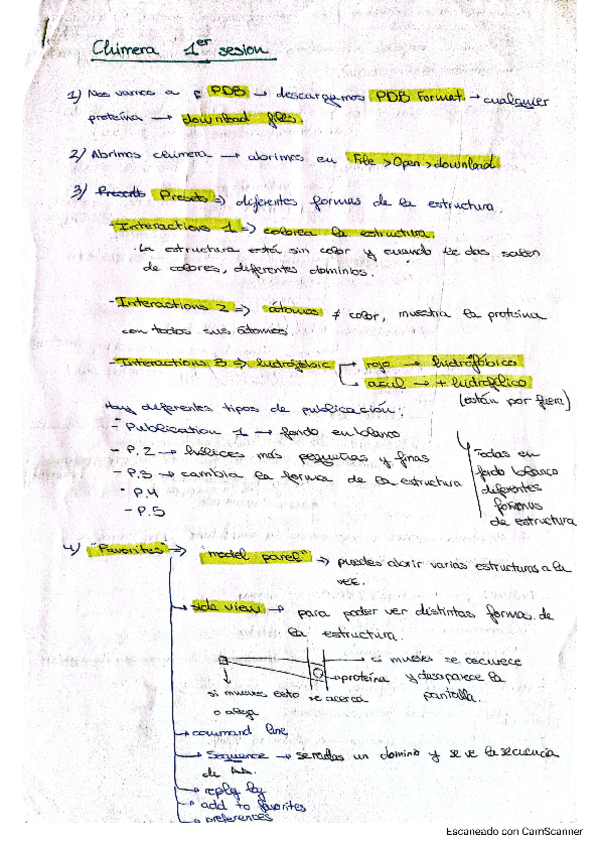 1.
Chimera 1er sesion
1) Nos vamos a PDB → descargamos PDB Format → cualquier
proteína → download files.
2) Abrimos chimera → abrimos en File > Open > download
3) Presets => diferentes formas de la estructura.
-Interactions 1 => colorea la estructura.
·La estructura está sin color y cuando le das salen
de colores, diferentes dominios.
-Interactions 2 => átomos ≠ color, muestra la proteína
con todos sus átomos.
-Interactions 3 => hidrofobic
rojo → hidrófóbico
azul → + hidrofílico
(están por fuera)
Hay diferentes tipos de publicación:
- Publication 1 → fondo en blanco
- P.2 → hélices más pequeñas y finas
- P.3 → cambia la forma de la estructura
- P.4
- P.5
Todas en
fondo blanco
diferentes
formas
de estructura
4) "Favorites" => "model panel" → puedes abrir varias estructuras a la
vez.
→ side view → para poder ver distintas forma de
la estructura.
→ si mueves se oscurece
→ proteína y desaparece la
pantalla.
si mueves esto se acerca
o aleja
→ command line
→ Sequence → seleccionas un dominio y se ve la secuencia
de AA.
→ reply log
→ add to favorites
→ preferences
Escaneado con CamScanner